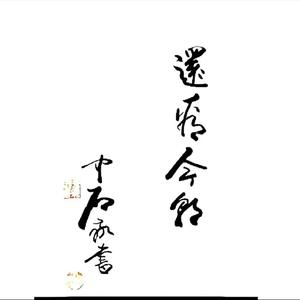 還看今朝
中石敬書